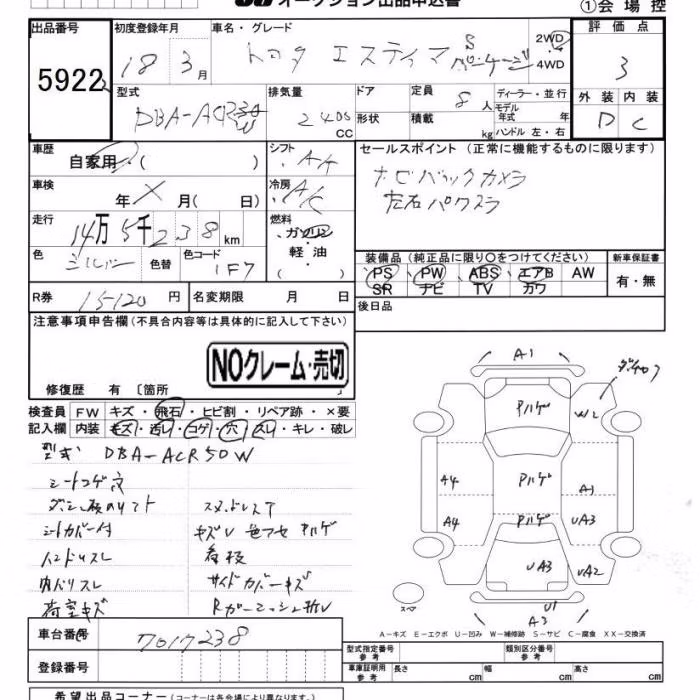 オークション出品申込書
①会場控
出品番号 初度登録年月 車名・グレード 評価点
5922 18年 3月 トヨタ エスティマ S 2WD 4WD 3
型式 排気量 ドア 定員 ディーラー・並行 外装 内装
DBA-ACR50W 2400 CC 形状 積載 8人 kg モデル年式 年 ハンドル 左・右 D C
車歴 自家用・( ) シフト AT セールスポイント (正常に機能するものに限ります)
車検 年 × 月( 日) 冷房 A/C ナビバックカメラ
走行 14万5千238km 燃料 ガソリン 軽油 ( ) 左右パワスラ
色 シルバー 色替 色コード 1F7 装備品 (純正品に限り○をつけてください) 新車保証書
PS PW ABS エアB AW 有・無
SR ナビ TV カワ
R券 15120円 名変期限 月 日 後日品
注意事項申告欄(不具合内容等は具体的に記入して下さい)
NOクレーム・売切
修復歴 有 〔箇所
検査員記入欄 FW キズ・飛石・ヒビ割・リペア跡・×要
内装 キズ・汚れ・コゲ・穴・スレ・キレ・破レ
型式 DBA-ACR50W
シートコゲ穴
シートカバー付 キズV 色アセ ハルゲ
ハンドルスレ 看板
内ハリスレ サイドカバーキズ
荷室キズ
A1
W2
ハルゲ
A4 ハルゲ A1
A4 ハルゲ UA3
UA3 UA2
スペア U1
A3
A-キズ E-エクボ U-凹み W-補修跡 S-サビ C-腐食 XX-交換済
車台番号 7017238
登録番号
型式指定番号 参考 類別区分番号 参考
車庫証明用 参考 長さ cm 幅 cm 高さ cm
希望出品コーナー(コーナーは各会場により異なります。)